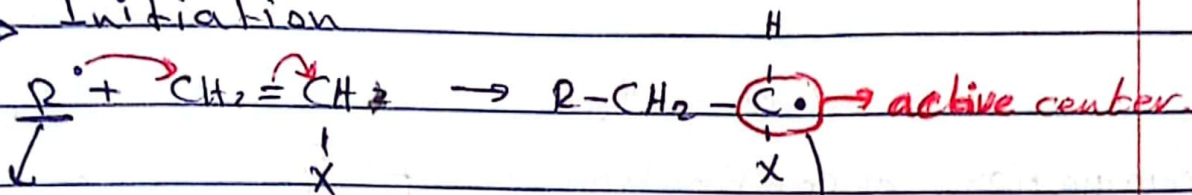 Initiation
H
R• + CH₂ = CH → R-CH₂-C• → active center.
X X